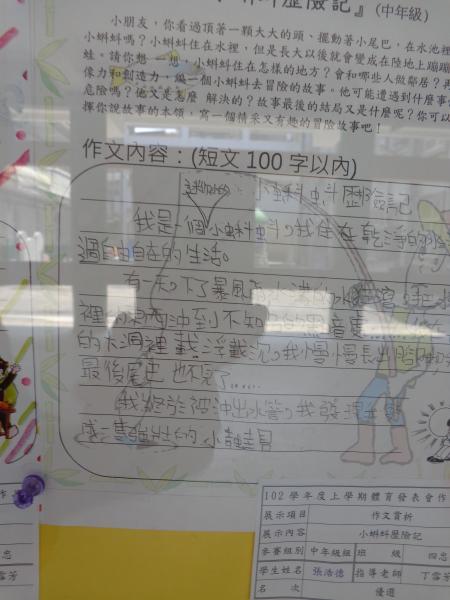 歷險記』(中年級)
小朋友，你看過頂著一顆大大的頭、擺動著小尾巴，在水池裡
小蝌蚪嗎？小蝌蚪住在水裡，但是長大以後就會變成在陸地上蹦蹦
蛙。請你想一想，小蝌蚪住在怎樣的地方？會和哪些人做鄰居？
像力和創造力，編一個小蝌蚪去冒險的故事。他可能遭遇到什麼事
危險嗎？他又是怎麼 解決的？故事最後的結局又是什麼呢？你可以
揮你說故事的本領，寫一個精采又有趣的冒險故事吧！
作文內容：(短文100字以內)
小蝌蚪歷險記
我是一個小蝌蚪，我住在乾淨的
過自由自在的生活。
有一天，下了暴風雨，
裡的東西沖到不知
的大湖裡載浮載沉，我慢慢長出腳
最後尾巴也不見了……
我終於被沖出水管，我發現
成一隻雄壯的小
102學年度上學期體育發表會作
展示項目 作文賞析
展示內容 小蝌蚪歷險記
參賽組別 中年級組 班 級 四忠
學生姓名 張浩德 指導老師 丁雪芳
名 次 優選